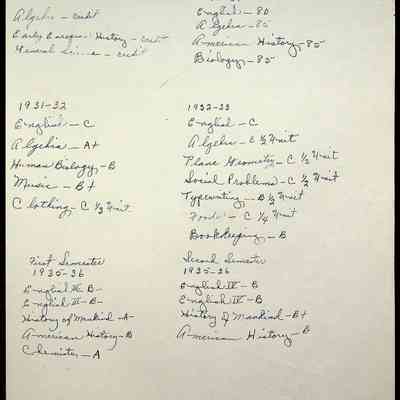 Algebra - credit
Early European History - credit
General Science - credit
English - 80
Algebra - 85
American History - 85
Biology - 85
1931-32
English - C
Algebra - A+
Human Biology - B
Music - B+
Clothing - C 1/2 Unit
1932-33
English - C
Algebra - C 1/2 Unit
Plane Geometry - C 1/2 Unit
Social Problems - C 1/2 Unit
Typewriting - B 1/2 Unit
Foods - C 1/4 Unit
Bookkeeping - B
First Semester
1935-36
English III B-
English IV - B-
History of Mankind - A-
American History - B
Chemistry - A
Second Semester
1935-36
English III - B
English IV - B
History of Mankind - B+
American History - B